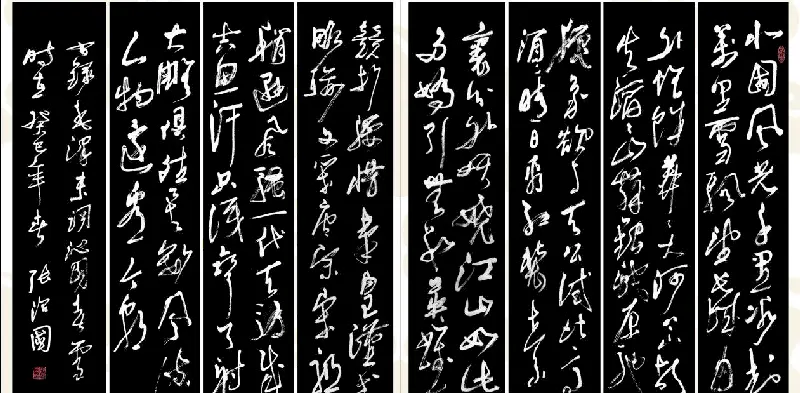 北国风光千里冰封
万里雪飘望长城内
外惟馀莽莽大河上下顿
失滔滔山舞银蛇原驰
蜡象欲与天公试比高
须晴日看红装素
裹分外妖娆江山如此
多娇引无数英雄
竞折腰惜秦皇汉武
略输文采唐宗宋祖
稍逊风骚一代天骄成
吉思汗只识弯弓射
大雕俱往矣数风流
人物还看今朝
右录毛泽东词沁园春雪
时在癸巳年春